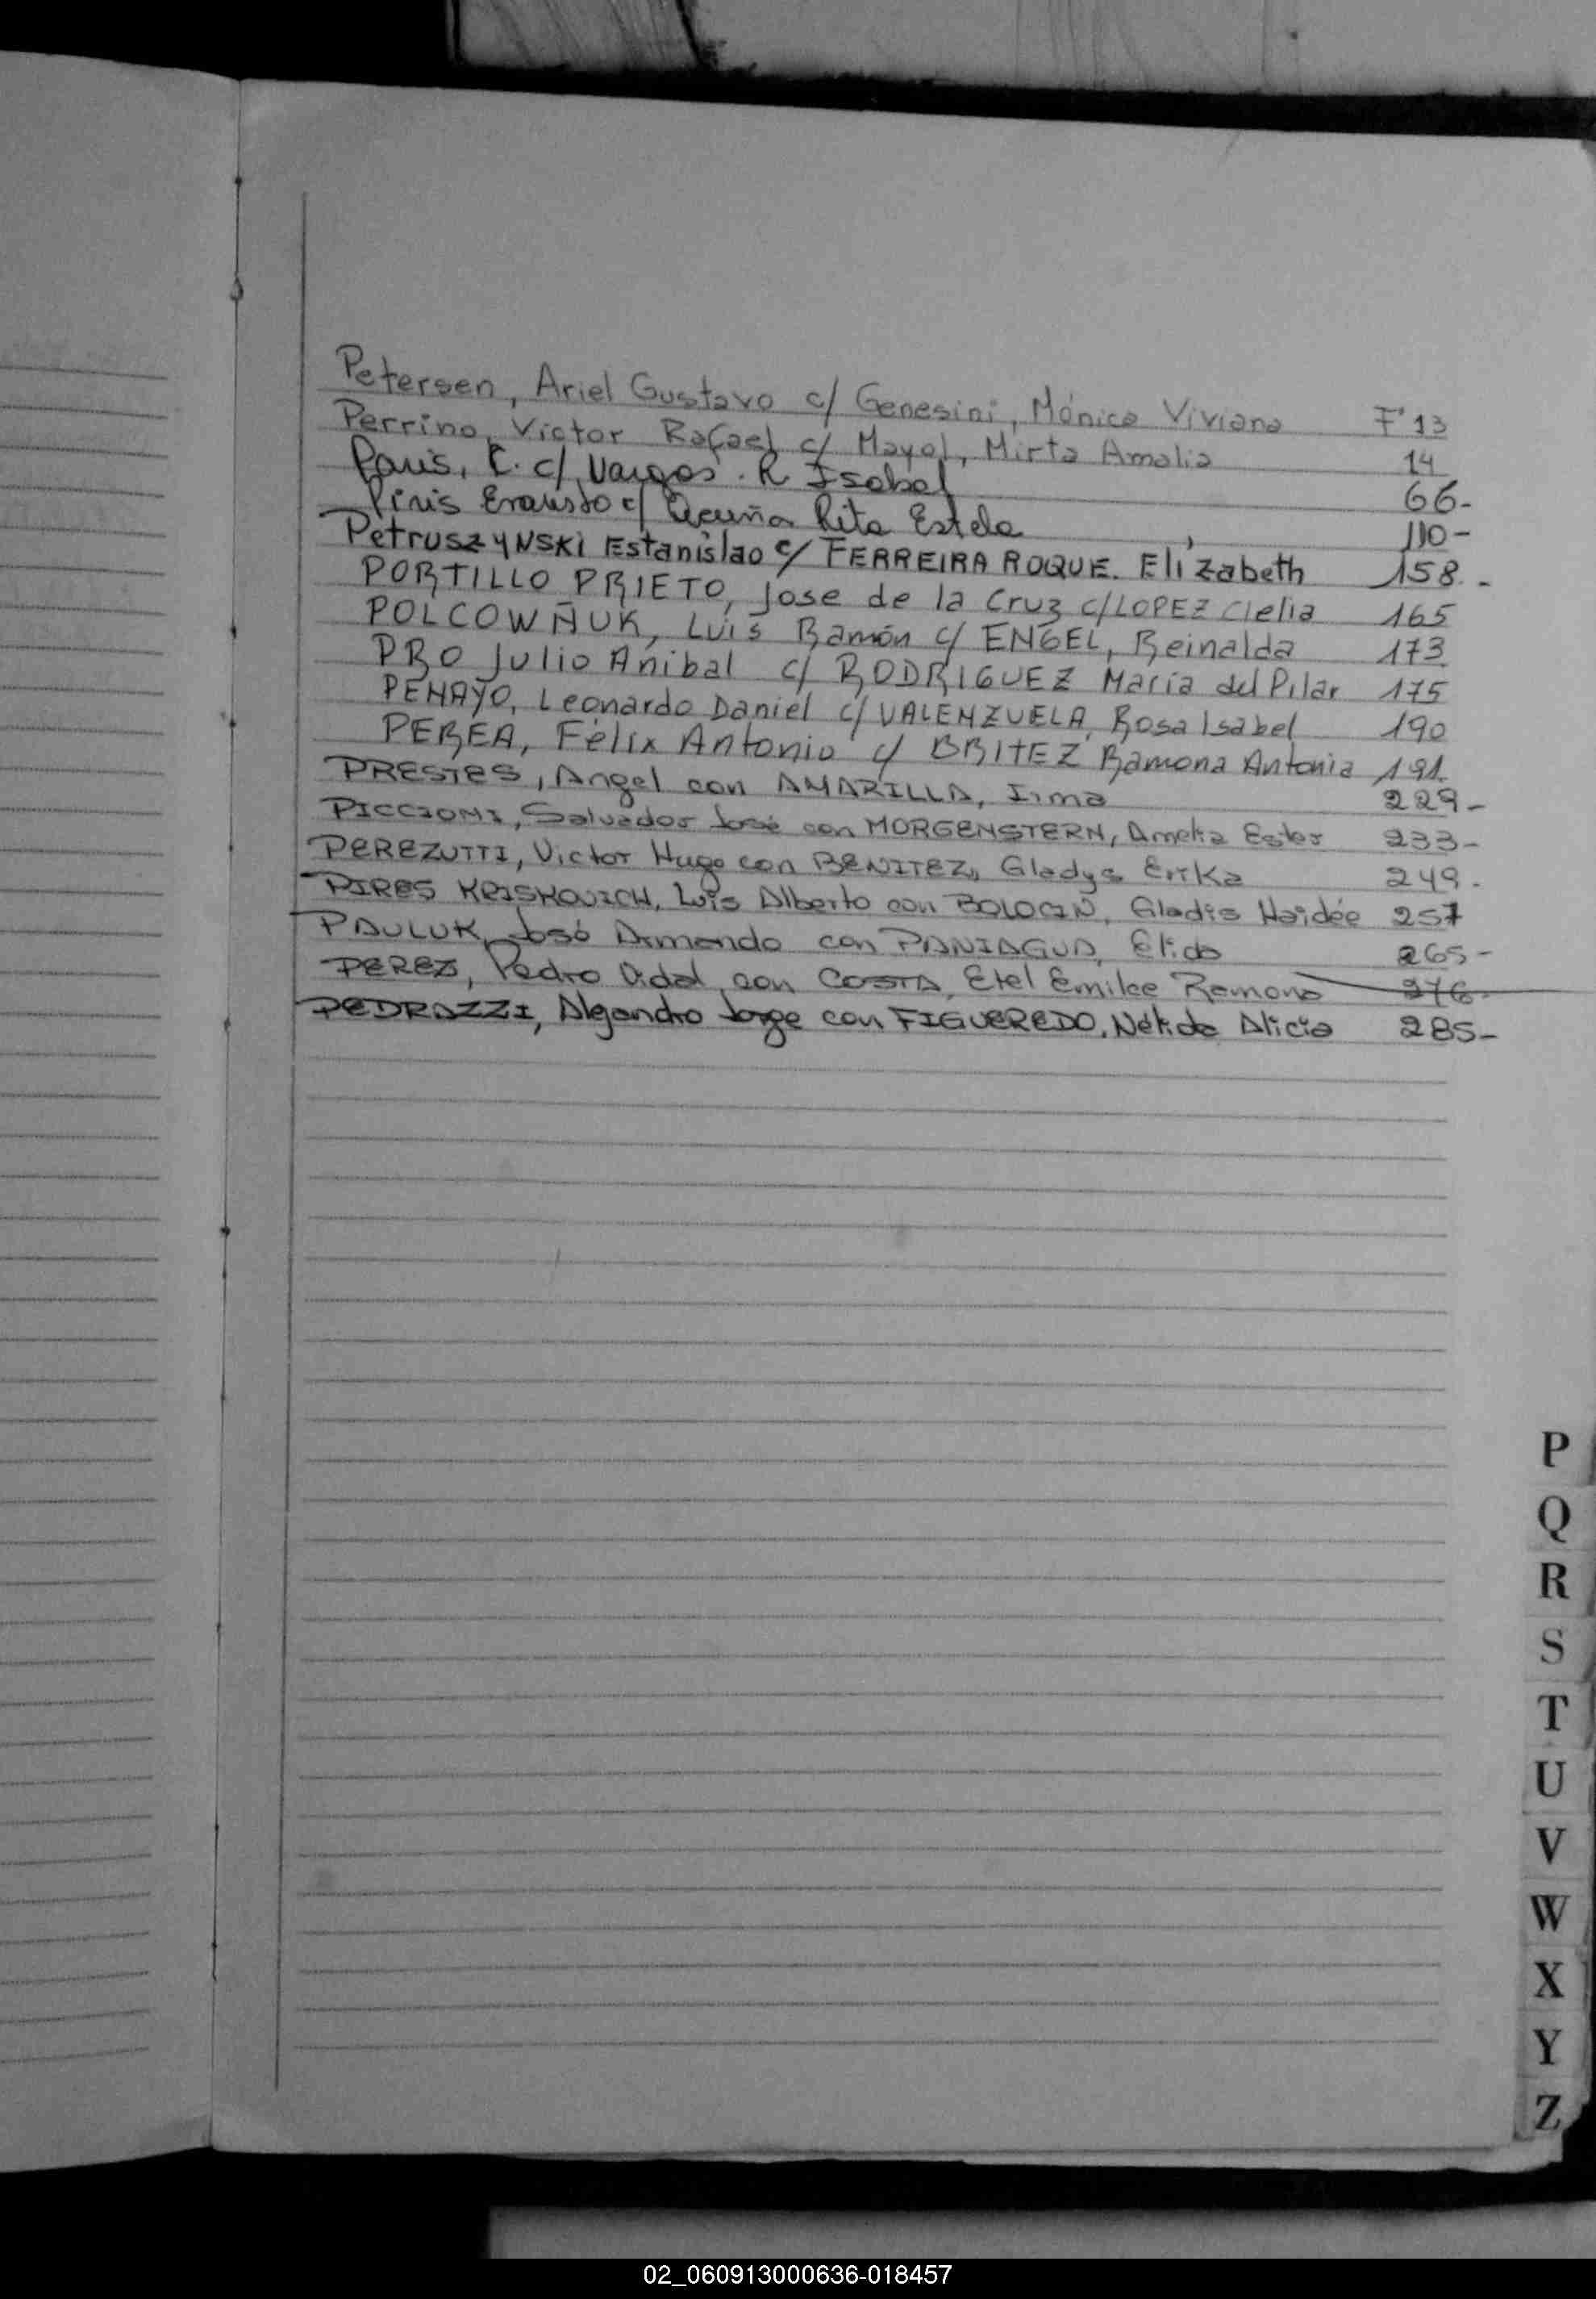 Petersen, Ariel Gustavo c/ Genesini, Mónica Viviana F° 13
Perrino, Victor Rafael c/ Mayol, Mirta Amalia 14
c/ Vargas. R Isabel 66-
Piris Erausto c/ Acuña Rita Estela 110-
PetruszyNSKi Estanislao c/ FERREIRA ROQUE. Elizabeth 158.-
PORTILLO PRIETO, Jose de la Cruz c/LOPEZ Clelia 165
POLCOWÑUK, Luis Ramón c/ ENGEL, Reinalda 173
PRO Julio Anibal c/ RODRIGUEZ María del Pilar 175
PENAYO, Leonardo Daniel c/ VALENZUELA, Rosa Isabel 190
PEREA, Félix Antonio c/ BRITEZ Ramona Antonia 191.
PRESTES, Angel con AMARILLA, Irma 229-
PICCIONI, Salvador José con MORGENSTERN, Amelia Ester 233-
PEREZUTTI, Victor Hugo con BENITEZ, Gladys Erika 249.
PIRES KRISKOVICH, Luis Alberto con Gladis Haidée 257
PAULUK, José Armando con PANIAGUA, Elida 265-
PEREZ, Pedro Vidal con COSTA, Etel Emilce Ramona 276-
PEDRAZZI, Alejandro Jorge con FIGUEREDO, Nélida Alicia 285-
P
Q
R
S
T
U
V
W
X
Y
Z
02_060913000636-018457